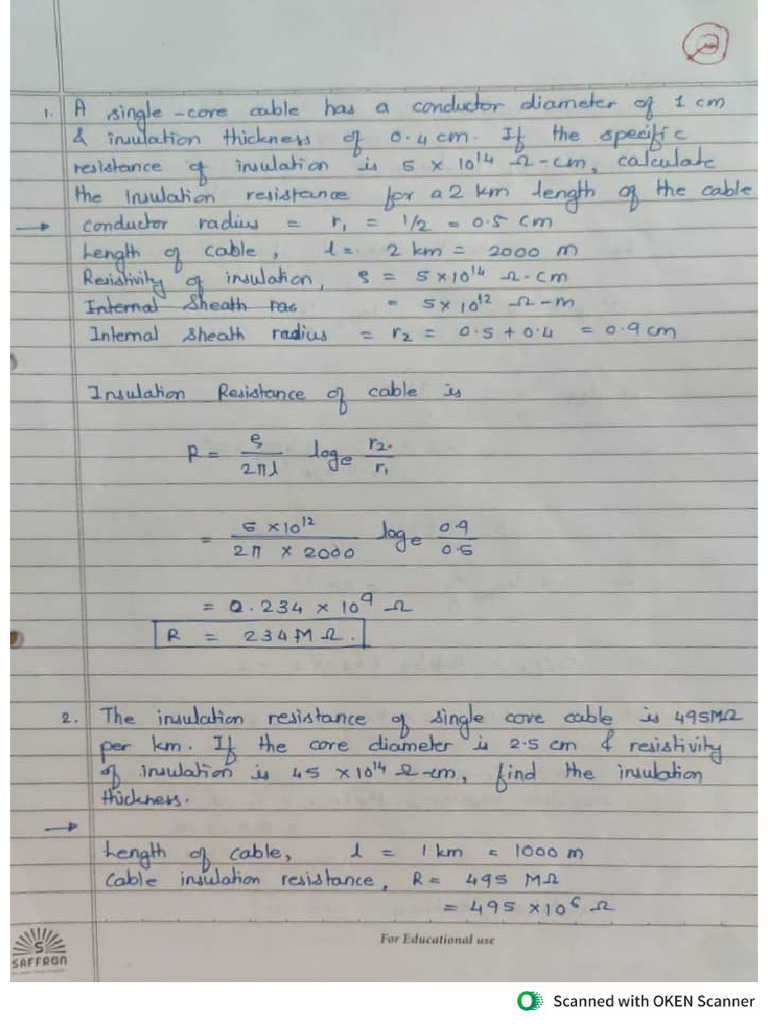 1. A single-core cable has a conductor diameter of 1 cm
& insulation thickness of 0.4 cm. If the specific
resistance of insulation is 5 × 10¹⁴ Ω-cm, calculate
the Insulation resistance for a 2 km length of the cable
→ conductor radius = r₁ = 1/2 = 0.5 cm
Length of cable, l = 2 km = 2000 m
Resistivity of insulation, ρ = 5×10¹⁴ Ω-cm
Internal Sheath rac = 5×10¹² Ω-m
Internal Sheath radius = r₂ = 0.5 + 0.4 = 0.9 cm
Insulation Resistance of cable is
R = ρ/2πl logₑ r₂/r₁
= 5×10¹²/2π × 2000 logₑ 0.9/0.5
= 0.234 × 10⁹ Ω
R = 234 MΩ.
2. The insulation resistance of single core cable is 495MΩ
per km. If the core diameter is 2.5 cm & resistivity
of insulation is 45 ×10¹⁴ Ω-cm, find the insulation
thickness.
→
Length of cable, l = 1 km = 1000 m
Cable insulation resistance, R = 495 MΩ
= 495 ×10⁶ Ω
For Educational use
S
SAFFRON
Scanned with OKEN Scanner